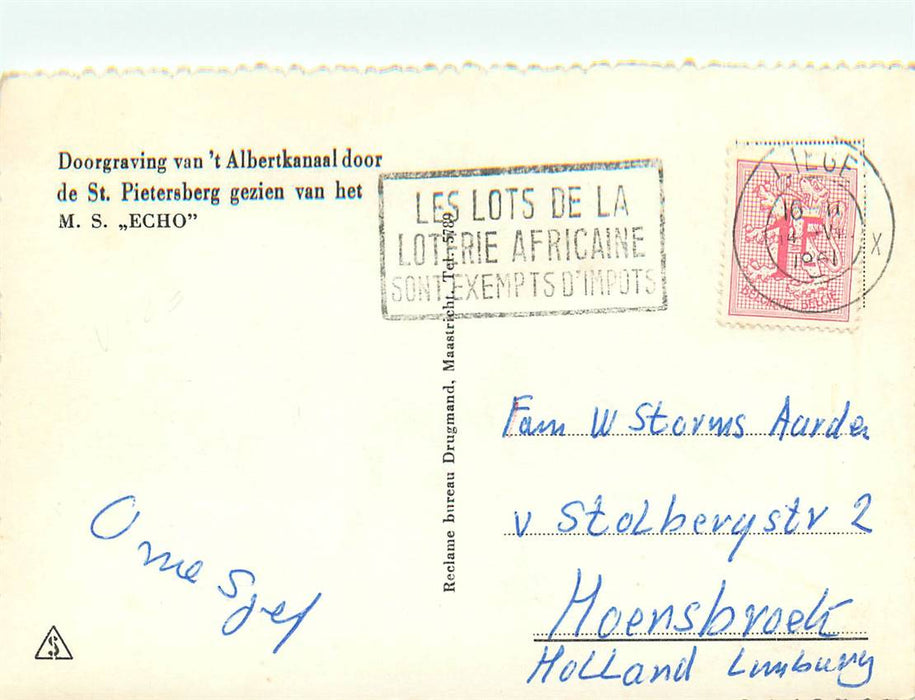 Doorgraving van 't Albertkanaal door
de St. Pietersberg gezien van het
M. S. „ECHO”
LES LOTS DE LA
LOTERIE AFRICAINE
SONT EXEMPTS D'IMPOTS
LIEGE
1F
BELGIE
X
Reclame bureau Drugmand, Maastricht, Tel. 5789
Fam W Storms Aarden
v Stolbergstr 2
Hoensbroek
Holland Limburg
Ome Sjef
S